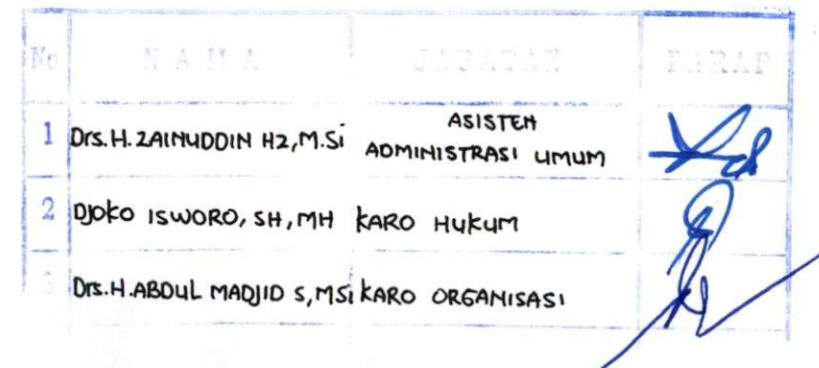 No N A M A JABATAN PARAF
1 Drs. H. ZAINUDDIN HZ, M.Si ASISTEN
ADMINISTRASI UMUM
2 DJOKO ISWORO, SH, MH KARO HUKUM
3 Drs. H. ABDUL MADJID S, MSi KARO ORGANISASI